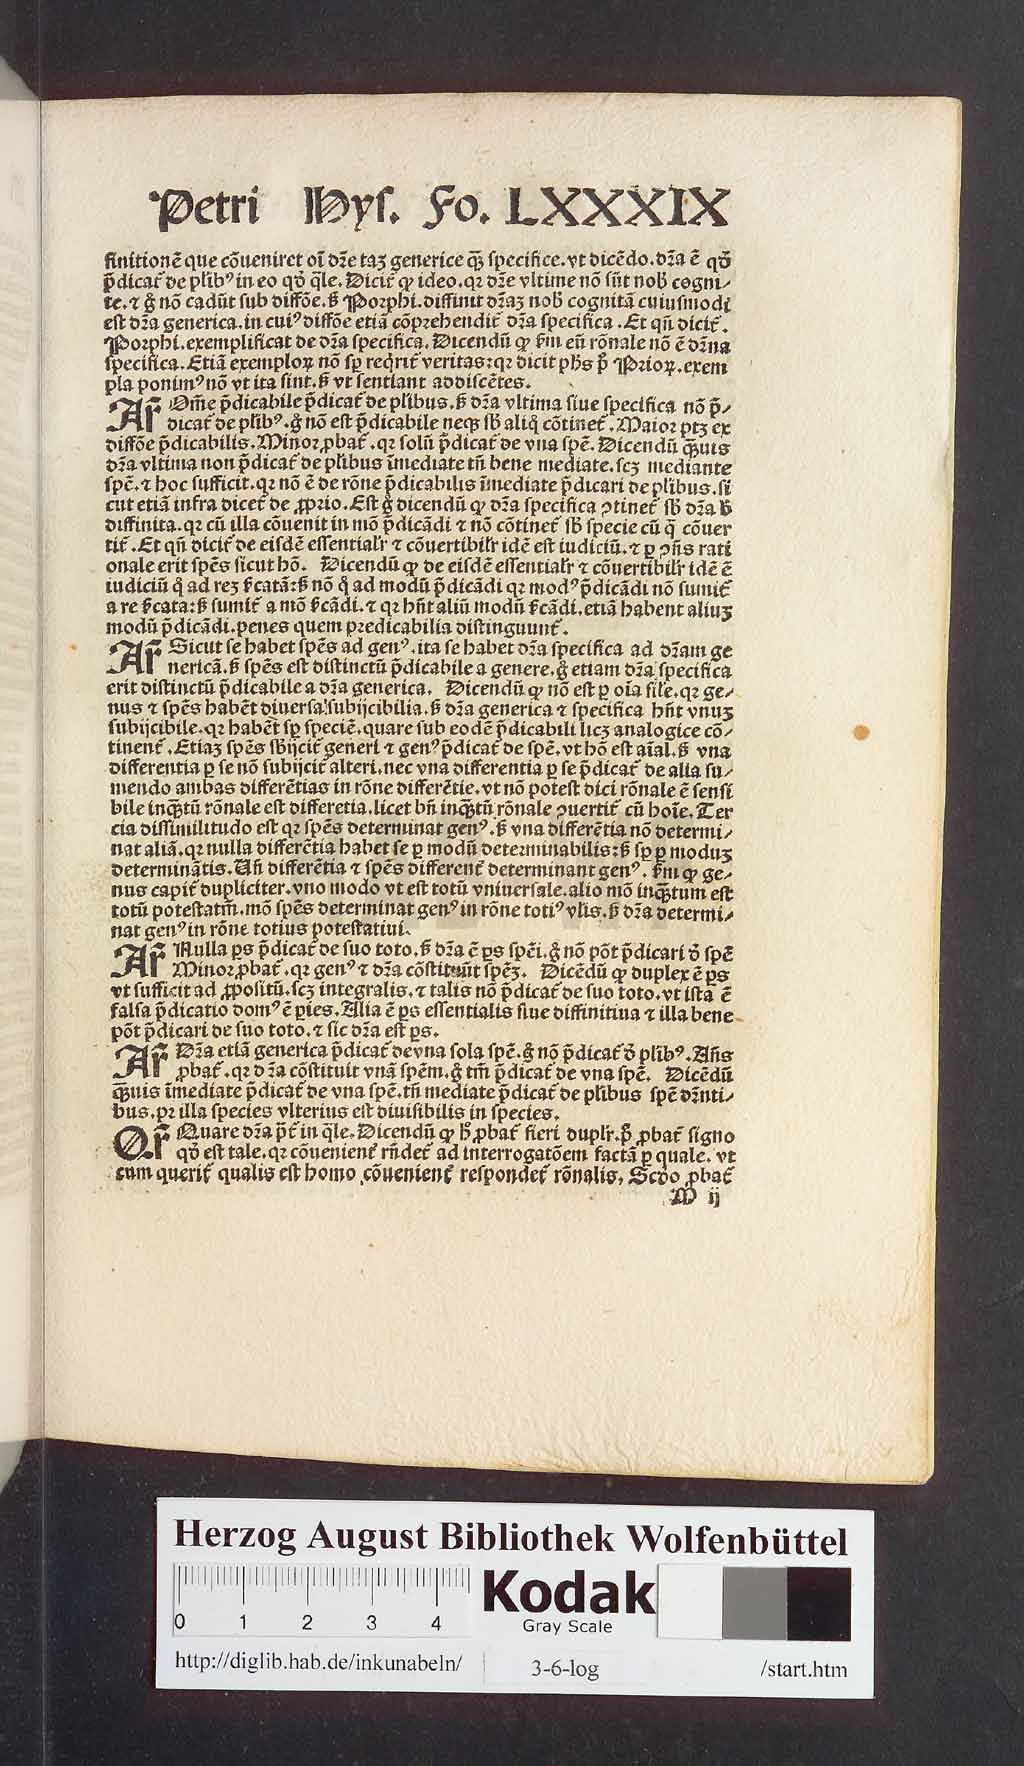 Petri Hys. Fo. LXXXIX
finitionē que cõueniret oī dr̄e taʒ generice q̄ʒ specifice. vt dicẽdo. dr̄a ē qd̛
p̄dicat᷑ de pl̄ibꝰ in eo qd̛ q̄le. Dicit᷑ ꝙ ideo. qꝛ dr̄e vltime nõ sũt nob̛ cogni⸗
te. ⁊ g̊ nõ cadũt sub diffõe. s̛ Porphi. diffinit dr̄aʒ nob̛ cognitā cuiusmodi
est dr̄a generica. in cuiꝰ diffõe etiā cõprehendit᷑ dr̄a specifica. Et qñ dicit᷑.
Porphi. exemplificat de dr̄a specifica. Dicendũ ꝙ s̛m eũ rõnale nõ ē dr̄na
specifica. Etiā exemploꝝ nõ sꝑ reqͥrit᷑ veritas: qꝛ dicit ph̄s p̛ Prioꝝ. exem
pla ponimꝰ nõ vt ita sint. s̛ vt sentiant addiscẽtes.
Ar᷑ Om̄e p̄dicabile p̄dicat᷑ de pl̄ibus. s̛ dr̄a vltima siue specifica nõ p̄⸗
dicat᷑ de pl̄ibꝰ. g̊ nõ est p̄dicabile neqʒ sb̛ aliq̊ cõtinet᷑. Maior ptʒ ex
diffõe p̄dicabilis. Minor ꝓbat᷑. qꝛ solũ p̄dicat᷑ de vna spē. Dicendũ q̄ʒuis
dr̄a vltima non p̄dicat᷑ de pl̄ibus īmediate tñ bene mediate. scʒ mediante
spē. ⁊ hoc sufficit. qꝛ nõ ē de rõne p̄dicabilis īmediate p̄dicari de pl̄ibus. si
cut etiā infra dicet᷑ de ꝓprio. Est g̊ dicendũ ꝙ dr̄a specifica ꝯtinet᷑ sb̛ dr̄a h̛
diffinita. qꝛ cũ illa cõuenit in mõ p̄dicādi ⁊ nõ cõtinet᷑ sb̛ specie cũ q̄ cõuer
tit᷑. Et qñ dicit᷑ de eisdē essentialr̄ ⁊ cõuertibilr̄ idē est iudiciũ. ⁊ ꝑ ꝯñs rati
onale erit spēs sicut hõ. Dicendũ ꝙ de eisdē essentialr̄ ⁊ cõuertibilr̄ idē ē
iudiciũ q̊ ad reʒ s̛catā: s̛ nõ q̊ ad modũ p̄dicādi qꝛ modꝰ p̄dicādi nõ sumit᷑
a re s̛cata: s̛ sumit᷑ a mõ s̛cādi. ⁊ qꝛ hñt aliũ modũ s̛cādi. etiā habent aliuʒ
modũ p̄dicādi. penes quem predicabilia distinguunt᷑.
Ar᷑ Sicut se habet spēs ad genꝰ. ita se habet dr̄a specifica ad dr̄am ge
nericā. s̛ spēs est distinctũ p̄dicabile a genere. g̊ etiam dr̄a specifica
erit distinctũ p̄dicabile a dr̄a generica. Dicendũ ꝙ nõ est ꝑ oīa sil̄e. qꝛ ge⸗
nus ⁊ spēs habēt diuersa subijcibilia. s̛ dr̄a generica ⁊ specifica hñt vnuʒ
subijcibile. qꝛ habēt sꝑ speciē. quare sub eodē p̄dicabili licʒ analogice cõ⸗
tinent᷑. Etiaʒ spēs sb̛ijcit᷑ generi ⁊ genꝰ p̄dicat᷑ de spē. vt hõ est aīal. s̛ vna
differentia ꝑ se nõ subijcit᷑ alteri. nec vna differentia ꝑ se p̄dicat᷑ de alia su⸗
mendo ambas differētias in rõne differētie. vt nõ potest dici rõnale ē sensi
bile inq̄ʒtũ rõnale est differetia. licet bñ inq̄ʒtũ rõnale ꝯuertit᷑ cũ hoīe. Ter
cia dissimilitudo est qꝛ spēs determinat genꝰ. s̛ vna differētia nõ determi⸗
nat aliā. qꝛ nulla differētia habet se ꝑ modũ determinabilis: s̛ sꝑ ꝑ moduʒ
determinātis. Añ differētia ⁊ spēs different᷑ determinant genꝰ. s̛m ꝙ ge⸗
nus capit᷑ dupliciter. vno modo vt est totũ vniuersale. alio mõ inq̄ʒtum est
totũ potestatiũ. mõ spēs determinat genꝰ in rõne totiꝰ vl̄is. s̛ dr̄a determi⸗
nat genꝰ in rõne totius potestatiui.
Ar᷑ Nulla ꝑs p̄dicat᷑ de suo toto. s̛ dr̄a ē ꝑs spēi. g̊ nõ põt p̄dicari d̛ spē
Minor ꝓbat᷑. qꝛ genꝰ ⁊ dr̄a cõstituũt spēʒ. Dicēdũ ꝙ duplex ē ꝑs
vt sufficit ad ꝓpositũ. scʒ integralis. ⁊ talis nõ p̄dicat᷑ de suo toto. vt ista ē
falsa p̄dicatio domꝰ ē ꝑies. Alia ē ꝑs essentialis siue diffinitiua ⁊ illa bene
põt p̄dicari de suo toto. ⁊ sic dr̄a est ꝑs.
Ar᷑ Dr̄a etiā generica p̄dicat᷑ de vna sola spē. g̊ nõ p̄dicat᷑ d̛ pl̄ibꝰ. Añs
ꝓbat᷑. qꝛ dr̄a cõstituit vnā spēm. g̊ tm̄ p̄dicat᷑ de vna spē. Dicēdũ
q̄ʒuis īmediate p̄dicat᷑ de vna spē. tñ mediate p̄dicat᷑ de pl̄ibus spē dr̄nti⸗
bus. pꝛ illa species vlterius est diuisibilis in species.
Qr᷑ Quare dr̄a p̄t᷑ in q̄le. Dicendũ ꝙ h̛ ꝓbat᷑ fieri duplr̄. p̛ ꝓbat᷑ signo
qd̛ est tale. qꝛ cõuenient᷑ rñdet᷑ ad interrogatõem factā ꝑ quale. vt
cum querit᷑ qualis est homo cõuenient᷑ respondet᷑ rõnalis, Scd̛o ꝓbat᷑
M ij
Herzog August Bibliothek Wolfenbüttel
0 1 2 3 4
Kodak
Gray Scale
http://diglib.hab.de/inkunabeln/ 3-6-log /start.htm